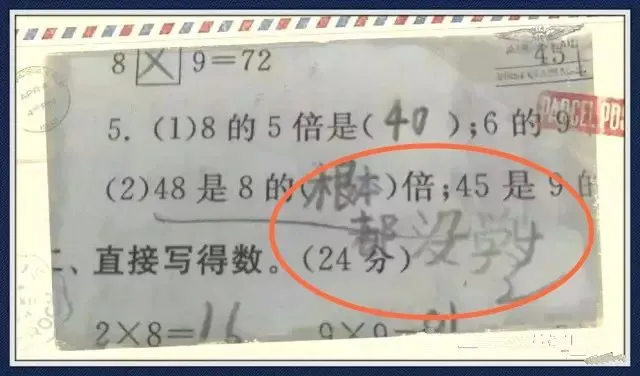 8 × 9=72
45
PARCEL POS
5. (1)8 的 5 倍是( 40 );6 的 9
(2)48 是 8 的(根本)倍;45 是 9 的
都没学
二、直接写得数。(24 分)
2
2×8=16 9×9=81